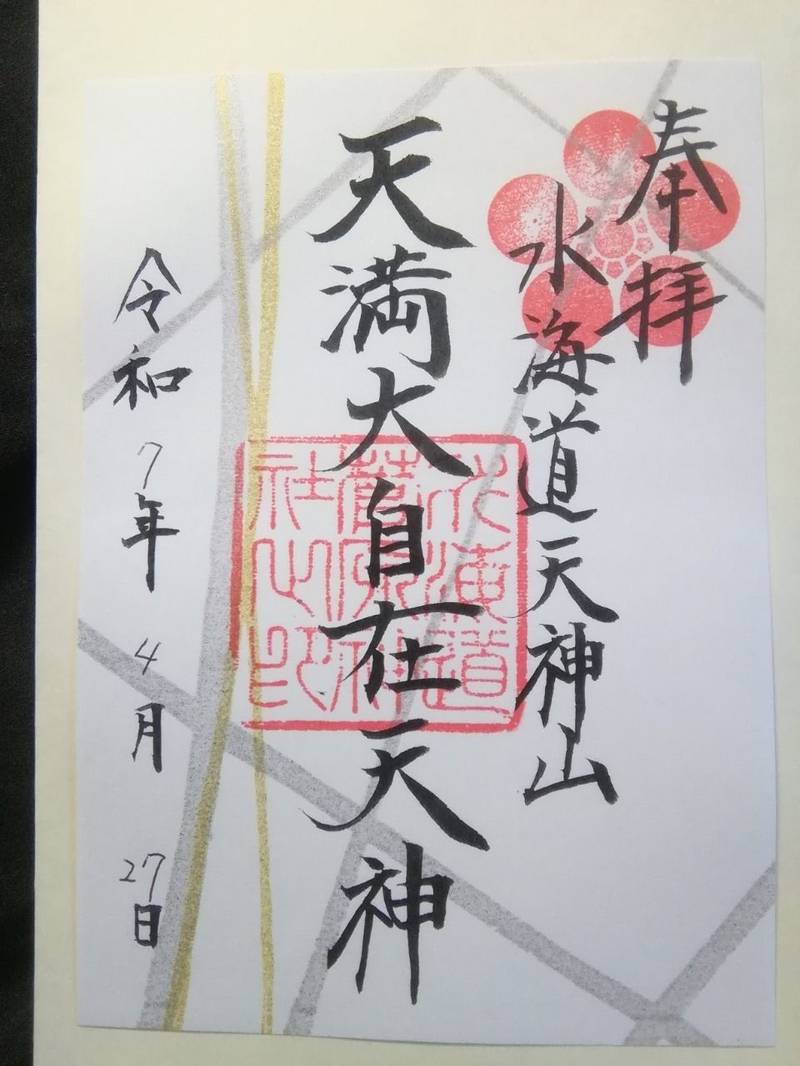 奉拝
水海道天神山
天満大自在天神
水海道
菅原神
社之印
令和7年4月27日